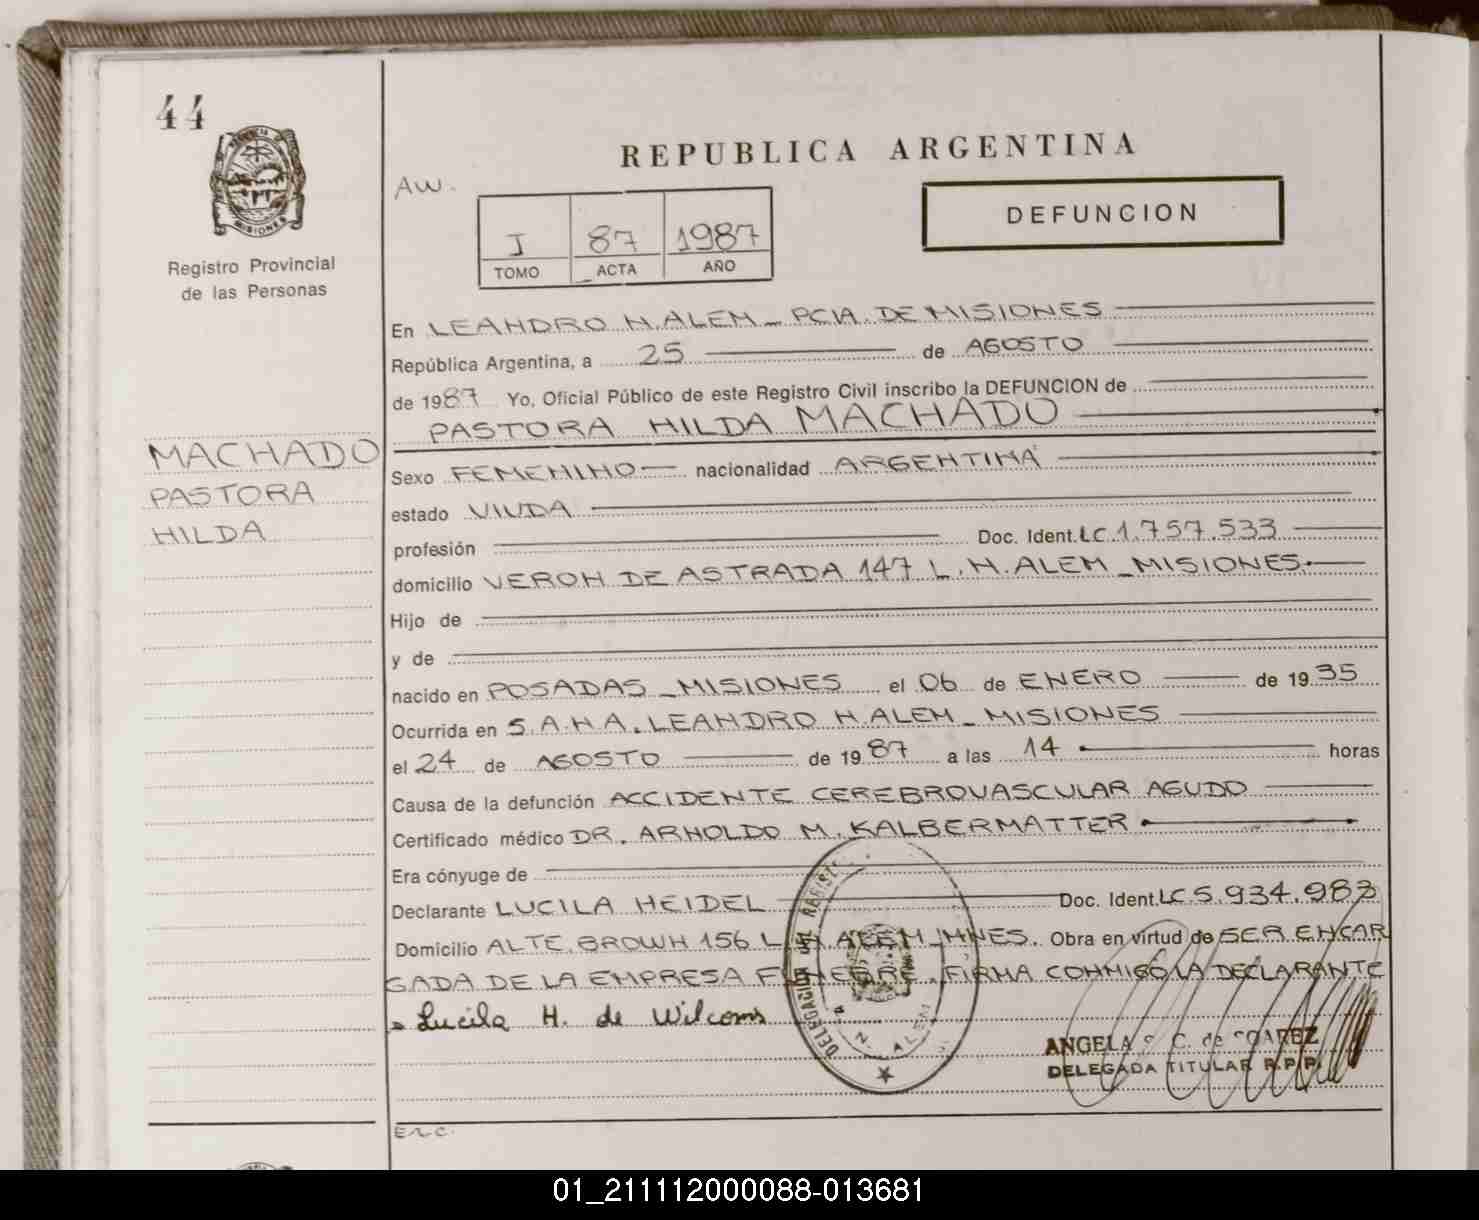 44
MISIONES
Registro Provincial
de las Personas
MACHADO
PASTORA
HILDA
REPUBLICA ARGENTINA
AW.
I 87 1987
TOMO ACTA AÑO
DEFUNCION
En LEANDRO N. ALEM - PCIA. DE MISIONES
República Argentina, a 25 de AGOSTO
de 1987 Yo, Oficial Público de este Registro Civil inscribo la DEFUNCION de
PASTORA HILDA MACHADO
Sexo FEMENINO nacionalidad ARGENTINA
estado VIUDA
profesión Doc. Ident. LC 1.757.533
domicilio VERON DE ASTRADA 147 L. N. ALEM - MISIONES
Hijo de
y de
nacido en POSADAS - MISIONES el 06 de ENERO de 1935
Ocurrida en S.A.M.A. LEANDRO N. ALEM - MISIONES
el 24 de AGOSTO de 1987 a las 14 horas
Causa de la defunción ACCIDENTE CEREBROVASCULAR AGUDO
Certificado médico DR. ARNOLDO M. KALBERMATTER
Era cónyuge de
Declarante LUCILA HEIDEL Doc. Ident. LC 5.934.983
Domicilio ALTE. BROWN 156 L. N. ALEM - MNES. Obra en virtud de SER ENCAR
GADA DE LA EMPRESA FUNEBRE. FIRMA CONMIGO LA DECLARANTE
Lucila H. de Wilcoms
DELEGACION DEL REGIST
N. ALEM
ANGELA C. de SOAREZ
DELEGADA TITULAR R.P.P.
ERC.
01_211112000088-013681